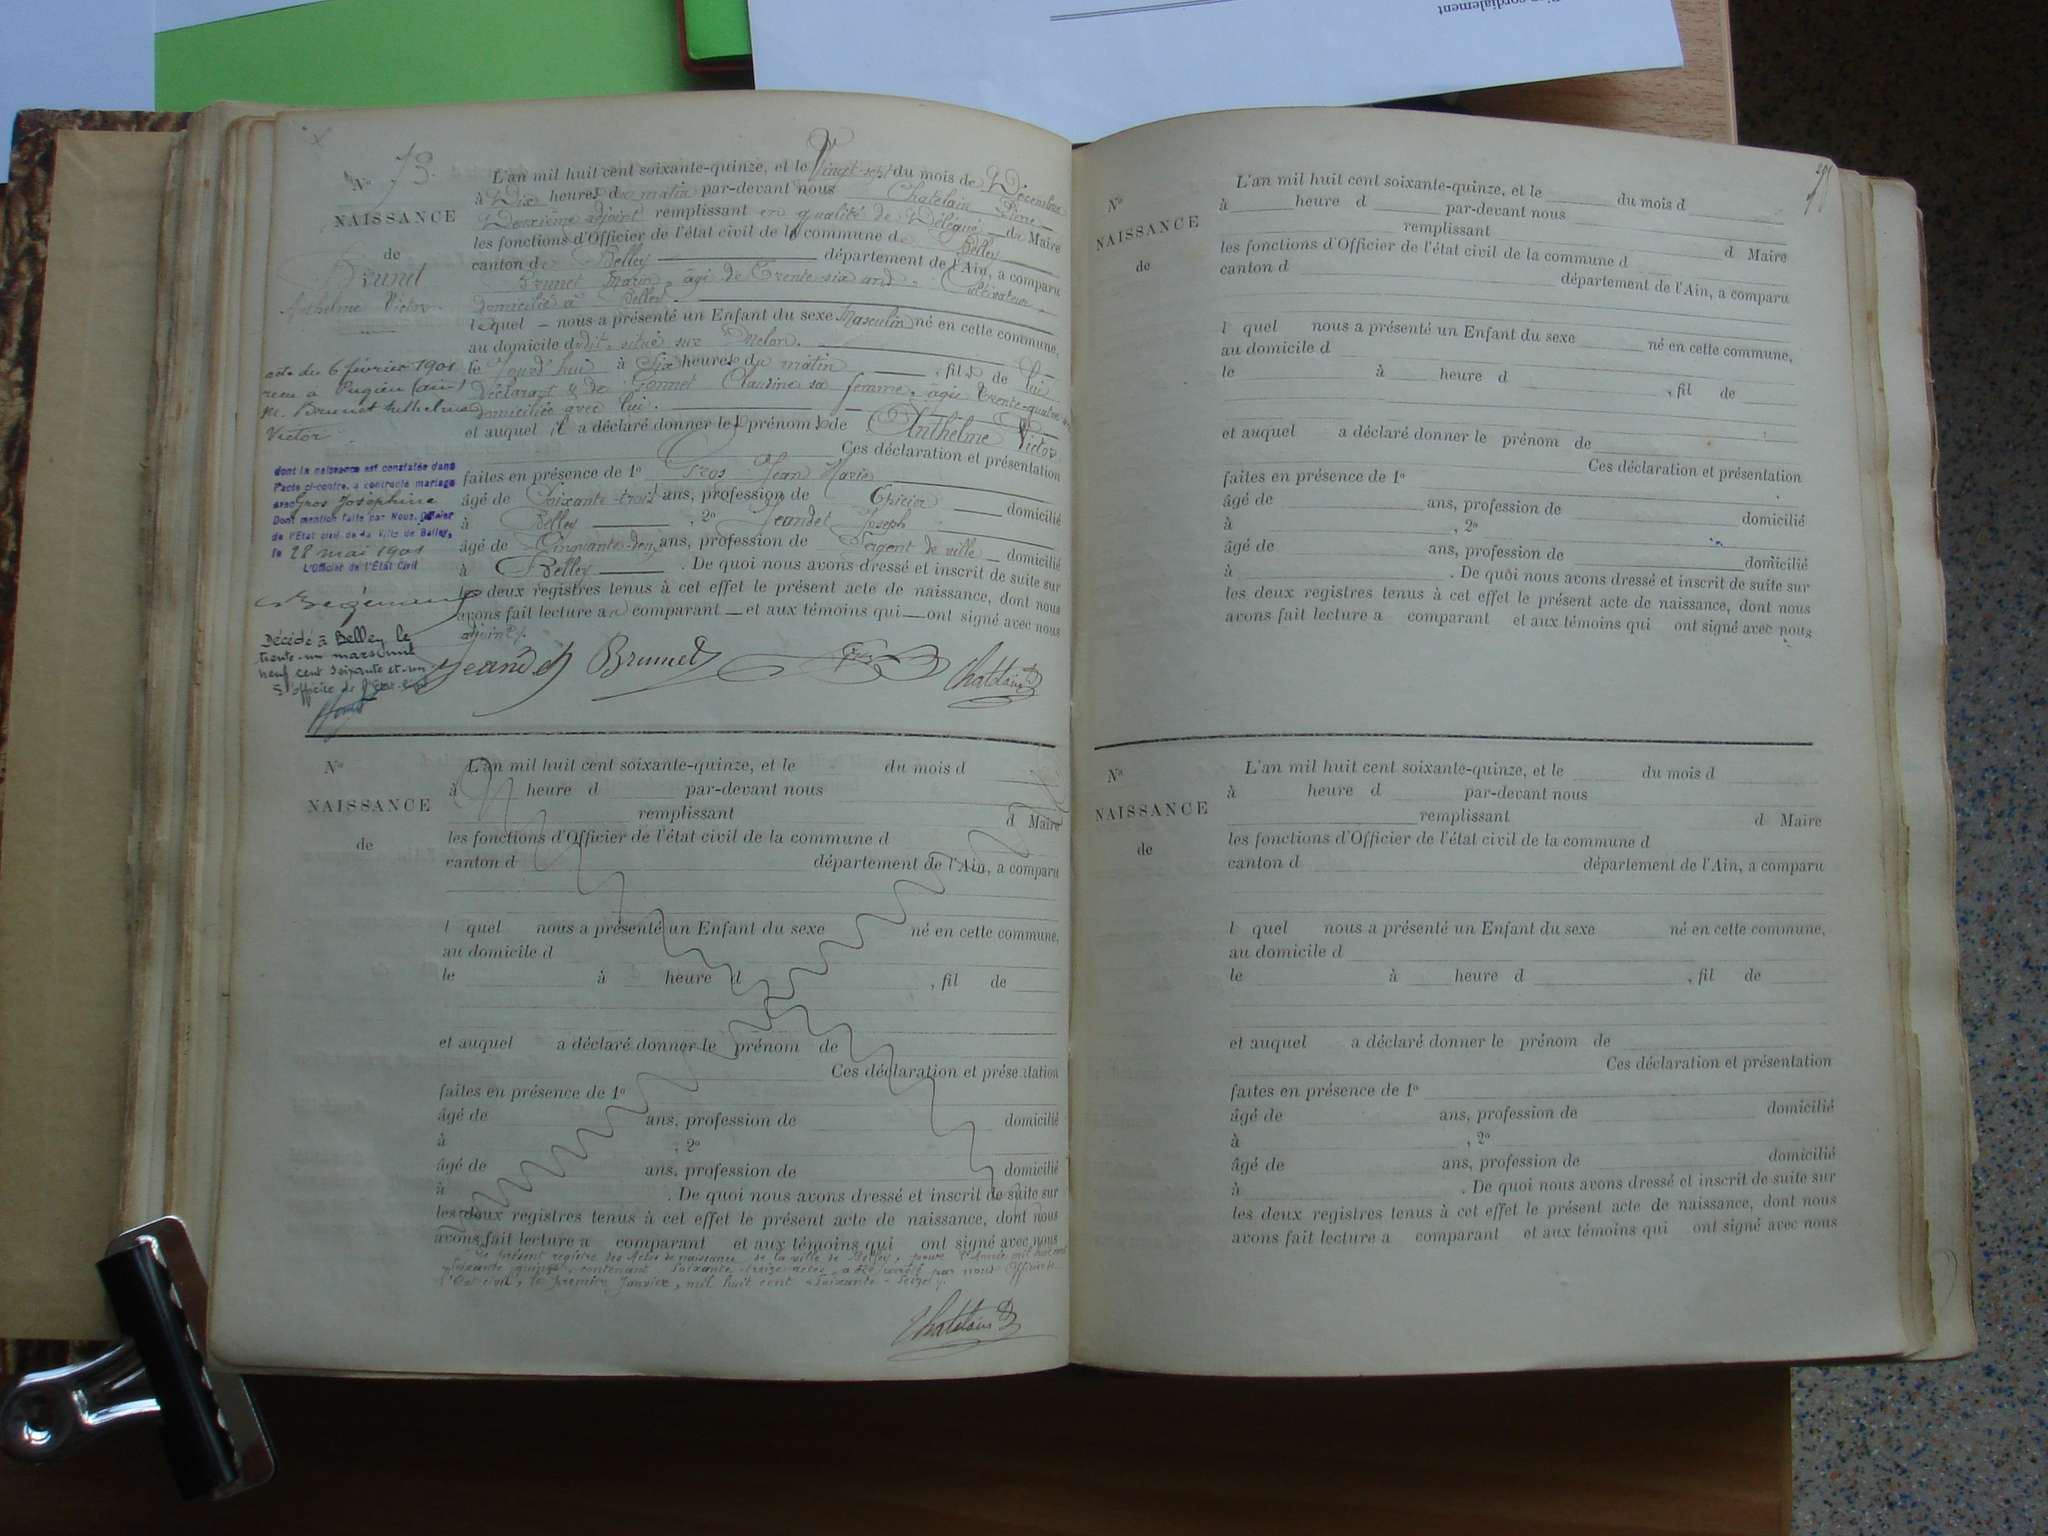 cordialement
Nº 73.
NAISSANCE
de
Brunet
Anthelme Victor
L'an mil huit cent soixante-quinze, et le Vingt-sept du mois de Décembre
à Dix heures du matin par-devant nous Chatelain Pierre
Deuxième adjoint remplissant en qualité de Délégué du Maire
les fonctions d'Officier de l'état civil de la commune de Belley
canton de Belley département de l'Ain, a comparu
Brunet Marin, âgé de Trente six ans, Cultivateur
domicilié à Belley.
lequel nous a présenté un Enfant du sexe Masculin né en cette commune,
au domicile dudit, situé sur Melon.
le Jourd'hui à Six heures du matin, fils de lui
Déclarant & de Gonnet Claudine sa femme, âgée Trente-quatre
domiciliée avec lui.
et auquel il a déclaré donner les prénoms de Anthelme Victor
Ces déclaration et présentation
faites en présence de 1º Gros Jean Marie
âgé de Soixante-trois ans, profession de Epicier domicilié
à Belley, 2º Jeandet Joseph
âgé de Cinquante-deux ans, profession de Sergent de ville domicilié
à Belley. De quoi nous avons dressé et inscrit de suite sur
les deux registres tenus à cet effet le présent acte de naissance, dont nous
avons fait lecture au comparant et aux témoins qui ont signé avec nous
adjoint.
Jeandet Brunet Gros Chatelain
acte du 6 février 1901
reçu à Pugieu (ain)
M. Brunet Anthelme
Victor
dont la naissance est constatée dans
l'acte ci-contre, a contracté mariage
avec Gros Joséphine
Dont mention faite par Nous, Officier
de l'Etat civil de la Ville de Belley,
le 28 mai 1901
L'Officier de l'Etat Civil
Décédé à Belley le
trente-un mars mil
neuf cent soixante et un
L'officier de l'Etat-Civil
Nº
NAISSANCE
de
L'an mil huit cent soixante-quinze, et le du mois d
à heure d par-devant nous
remplissant d Maire
les fonctions d'Officier de l'état civil de la commune d
canton d département de l'Ain, a comparu
l quel nous a présenté un Enfant du sexe né en cette commune,
au domicile d
le à heure d , fil de
et auquel a déclaré donner le prénom de
Ces déclaration et présentation
faites en présence de 1º
âgé de ans, profession de domicilié
à , 2º
âgé de ans, profession de domicilié
à . De quoi nous avons dressé et inscrit de suite sur
les deux registres tenus à cet effet le présent acte de naissance, dont nous
avons fait lecture a comparant et aux témoins qui ont signé avec nous
Le présent registre des Actes de naissance de la ville de Belley, pour l'Année mil huit cent
soixante quinze, contenant Soixante-treize actes, a été clos par nous Officier de
l'Etat civil, le premier Janvier, mil huit cent Soixante-Seize.
Chatelain
Nº
NAISSANCE
de
L'an mil huit cent soixante-quinze, et le du mois d
à heure d par-devant nous
remplissant d Maire
les fonctions d'Officier de l'état civil de la commune d
canton d département de l'Ain, a comparu
l quel nous a présenté un Enfant du sexe né en cette commune,
au domicile d
le à heure d , fil de
et auquel a déclaré donner le prénom de
Ces déclaration et présentation
faites en présence de 1º
âgé de ans, profession de domicilié
à , 2º
âgé de ans, profession de domicilié
à . De quoi nous avons dressé et inscrit de suite sur
les deux registres tenus à cet effet le présent acte de naissance, dont nous
avons fait lecture a comparant et aux témoins qui ont signé avec nous
Nº
NAISSANCE
de
L'an mil huit cent soixante-quinze, et le du mois d
à heure d par-devant nous
remplissant d Maire
les fonctions d'Officier de l'état civil de la commune d
canton d département de l'Ain, a comparu
l quel nous a présenté un Enfant du sexe né en cette commune,
au domicile d
le à heure d , fil de
et auquel a déclaré donner le prénom de
Ces déclaration et présentation
faites en présence de 1º
âgé de ans, profession de domicilié
à , 2º
âgé de ans, profession de domicilié
à . De quoi nous avons dressé et inscrit de suite sur
les deux registres tenus à cet effet le présent acte de naissance, dont nous
avons fait lecture a comparant et aux témoins qui ont signé avec nous